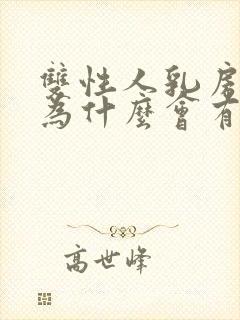 雙性人乳房
為什麼會有
高世峰